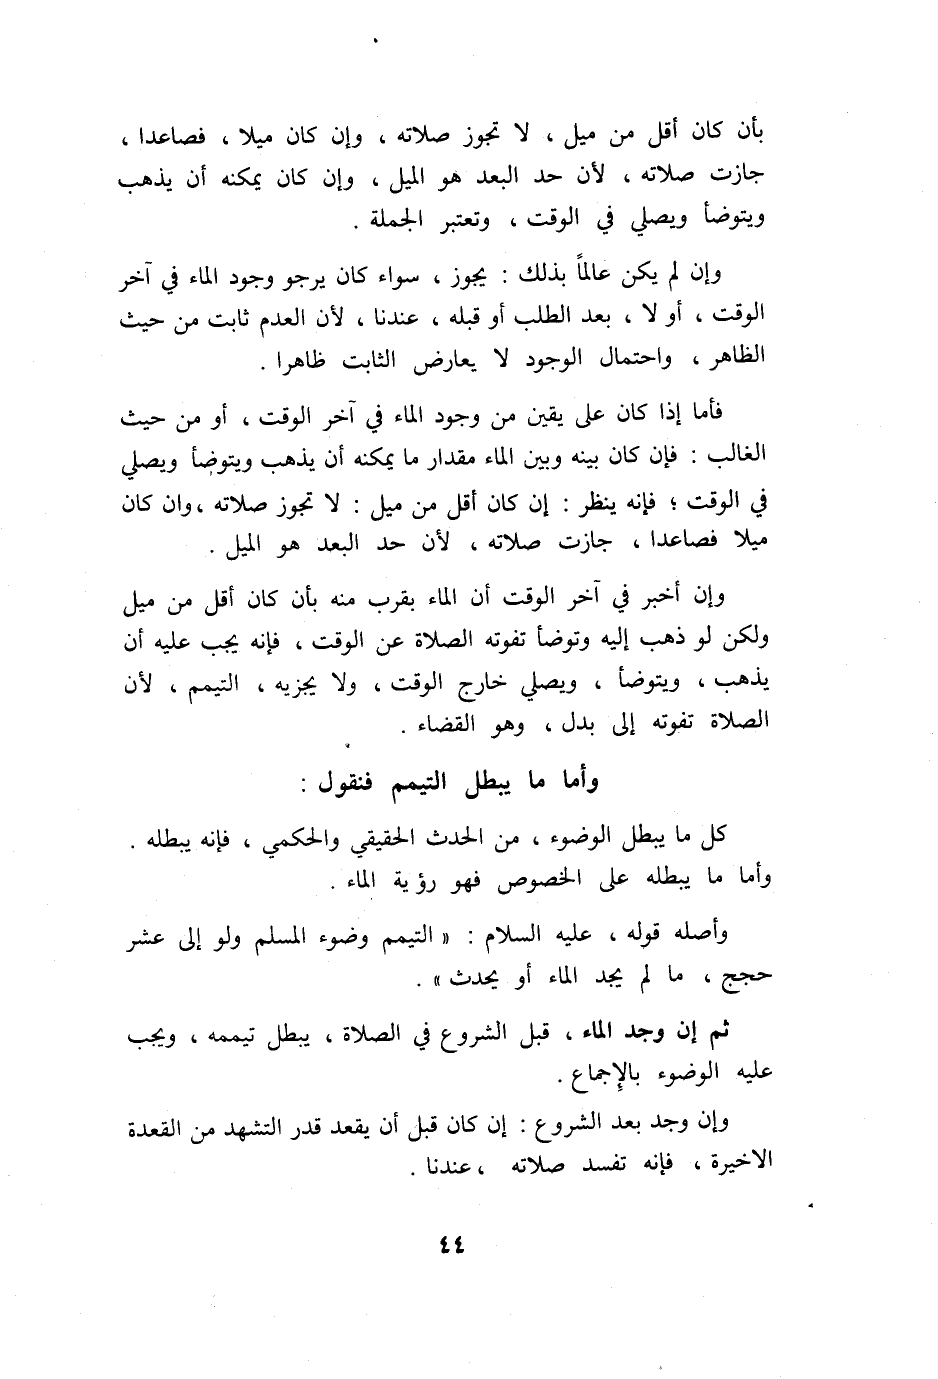 بأن كان أقل من ميل ، لا تجوز صلاته ، وإن كان ميلا ، فصاعدا ،
جازت صلاته ، لأن حد البعد هو الميل ، وإن كان يمكنه أن يذهب
ويتوضأ ويصلي في الوقت ، وتعتبر الجملة .
وإن لم يكن عالماً بذلك : يجوز ، سواء كان يرجو وجود الماء في آخر
الوقت ، أو لا ، بعد الطلب أو قبله ، عندنا ، لأن العدم ثابت من حيث
الظاهر ، واحتمال الوجود لا يعارض الثابت ظاهرا .
فأما إذا كان على يقين من وجود الماء في آخر الوقت ، أو من حيث
الغالب : فإن كان بينه وبين الماء مقدار ما يمكنه أن يذهب ويتوضأ ويصلي
في الوقت ؛ فإنه ينظر : إن كان أقل من ميل : لا تجوز صلاته ،وان كان
ميلا فصاعدا ، جازت صلاته ، لأن حد البعد هو الميل .
وإن أخبر في آخر الوقت أن الماء بقرب منه بأن كان أقل من ميل
ولكن لو ذهب إليه وتوضأ تفوته الصلاة عن الوقت ، فإنه يجب عليه أن
يذهب ، ويتوضأ ، ويصلي خارج الوقت ، ولا يجزيه ، التيمم ، لأن
الصلاة تفوته إلى بدل ، وهو القضاء .
وأما ما يبطل التيمم فنقول :
كل ما يبطل الوضوء ، من الحدث الحقيقي والحكمي ، فإنه يبطله .
وأما ما يبطله على الخصوص فهو رؤية الماء .
وأصله قوله ، عليه السلام : « التيمم وضوء المسلم ولو إلى عشر
حجج ، ما لم يجد الماء أو يحدث » .
ثم إن وجد الماء ، قبل الشروع في الصلاة ، يبطل تيممه ، ويجب
عليه الوضوء بالإجماع .
وإن وجد بعد الشروع : إن كان قبل أن يقعد قدر التشهد من القعدة
الاخيرة ، فإنه تفسد صلاته ، عندنا .
٤٤